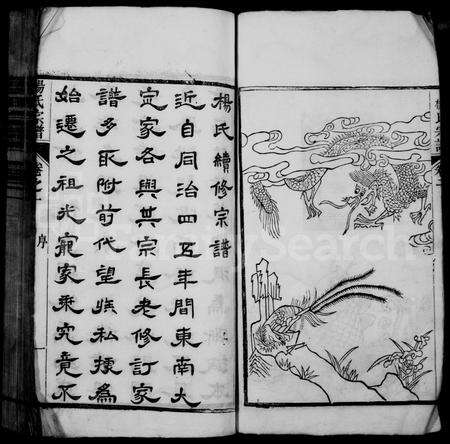 楊氏續修宗譜
近自同治四五年間東南大
定家各與其宗長老修訂家
譜多取附前代望族私撰為
始遷之祖光寵家乘究竟不
楊氏宗譜
卷之一
序
楊氏宗譜